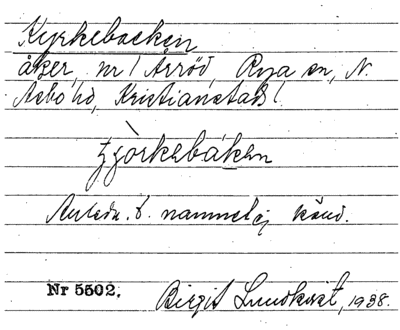 Kyrkebacken
åker, nr 1 Arröd, Rya sn, N.
Åsbo hd, Kristianstads l.
tjörkebáken
Anledn. t. namnet ej känd.
Nr 5502. Birgit Lundkvist, 1938.